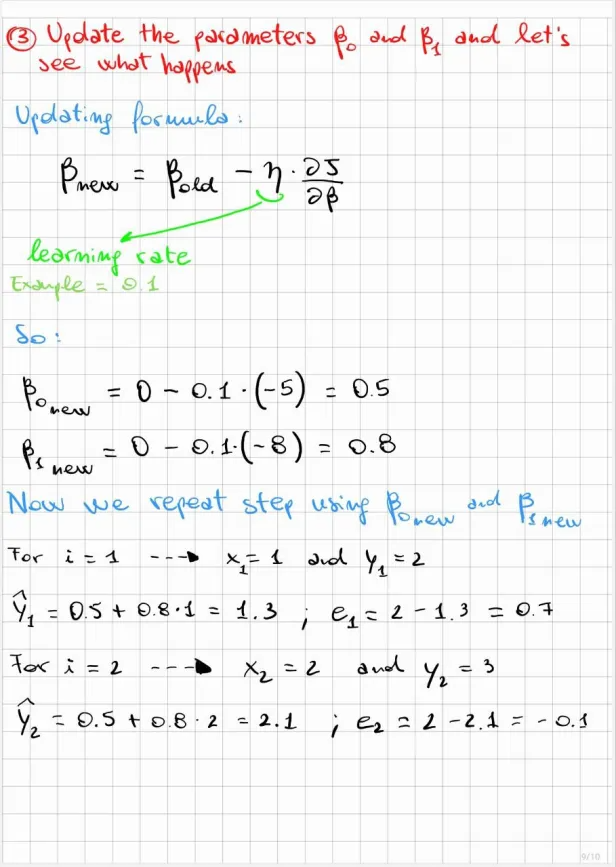 ③ Update the parameters β₀ and β₁ and let's
see what happens
Updating formula:
β_new = β_old − η · ∂J/∂β
learning rate
Example = 0.1
So:
β₀ new = 0 − 0.1 · (−5) = 0.5
β₁ new = 0 − 0.1 · (−8) = 0.8
Now we repeat step using β₀ new and β₁ new
For i = 1 ---► x₁ = 1 and y₁ = 2
Ŷ₁ = 0.5 + 0.8 · 1 = 1.3 ; e₁ = 2 − 1.3 = 0.7
For i = 2 ---► x₂ = 2 and y₂ = 3
Ŷ₂ = 0.5 + 0.8 · 2 = 2.1 ; e₂ = 2 − 2.1 = −0.1
9/10